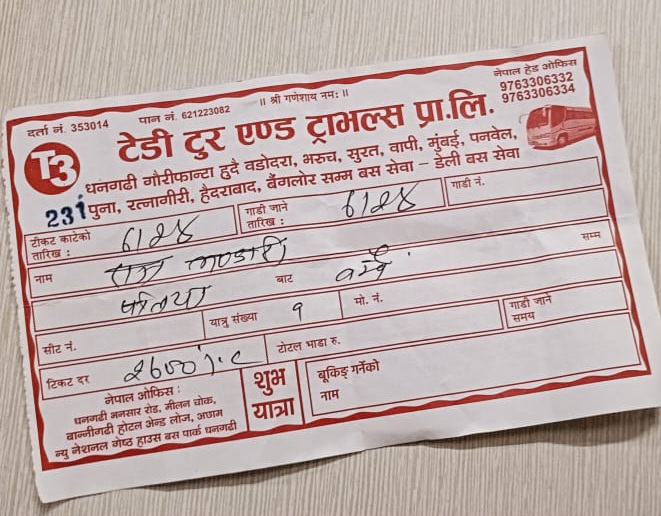 ॥ श्री गणेशाय नमः॥
दर्ता नं. 353014
पान नं. 621223082
नेपाल हेड ओफिस
9763306332
9763306334
T3
टेडी टुर एण्ड ट्राभल्स प्रा.लि.
धनगढी गौरीफान्टा हुदै वडोदरा, भरुच, सुरत, वापी, मुंबई, पनवेल,
पुना, रत्नागीरी, हैदराबाद, बैंगलोर सम्म बस सेवा – डेली बस सेवा
231
टीकट काटेको तारिख : 6/2८४
गाडी जाने तारिख : 6/2८४
गाडी नं.
नाम राज भण्डारी
बाट
सम्म
सीट नं.
यात्रु संख्या १
मो. नं.
गाडी जाने समय
टिकट दर 2600
टोटल भाडा रु.
नेपाल ओफिस :
धनगढी मनसार रोड, मीलन चोक,
बान्नीगढी होटल अेन्ड लोज, अछाम
न्यु नेशनल गेष्ठ हाउस बस पार्क धनगढी
शुभ यात्रा
बूकिङ्ग गर्नेको नाम